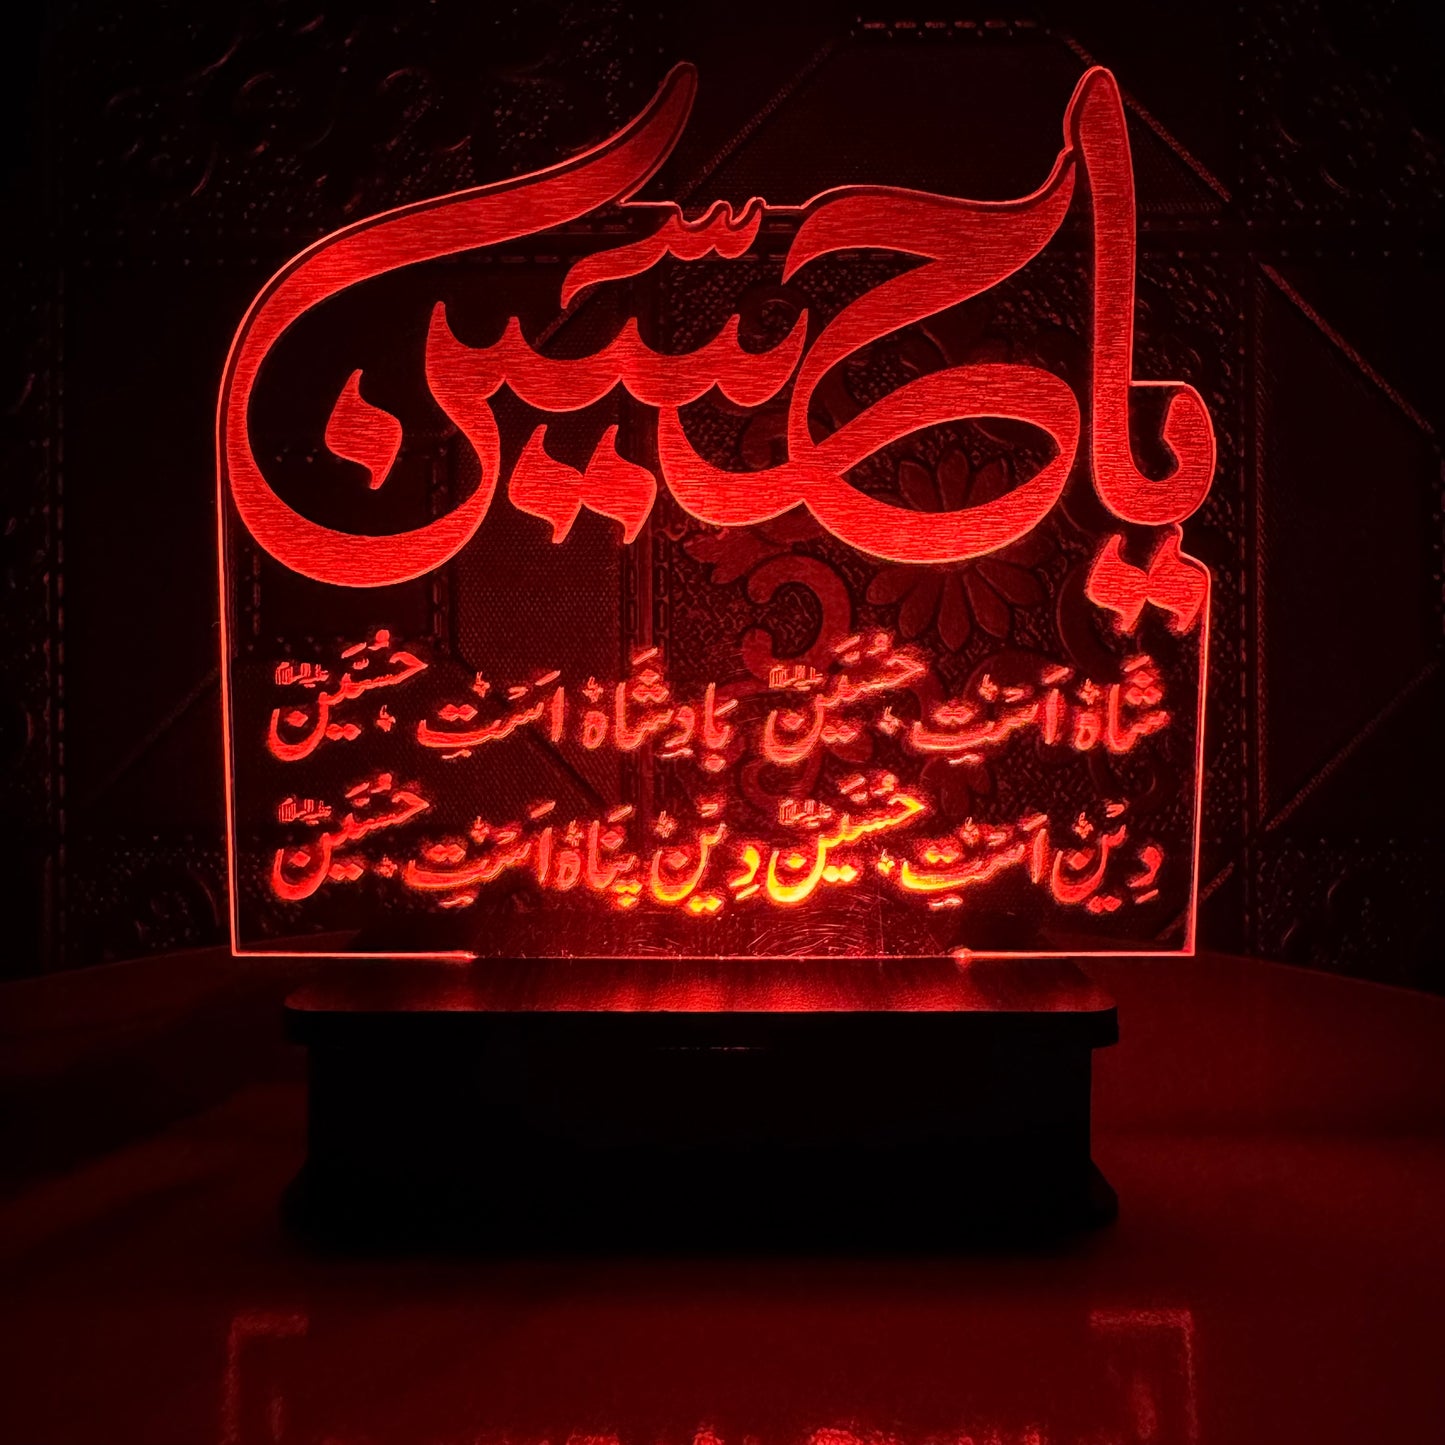 یا حسین
شَاہْ اَسْتْ حُسَیْنؑ بَادِشَاہْ اَسْتْ حُسَیْنؑ
دِیْنْ اَسْتْ حُسَیْنؑ دِیْنْ پَنَاہْ اَسْتْ حُسَیْنؑ